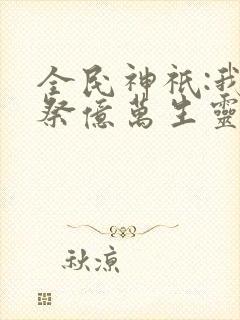 全民神祇:我
祭億萬生靈
秋涼